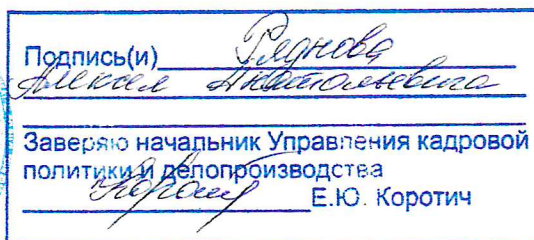 Подпись(и)
Алексея Анатольевича
Заверяю начальник Управления кадровой
политики и делопроизводства
Е.Ю. Коротич